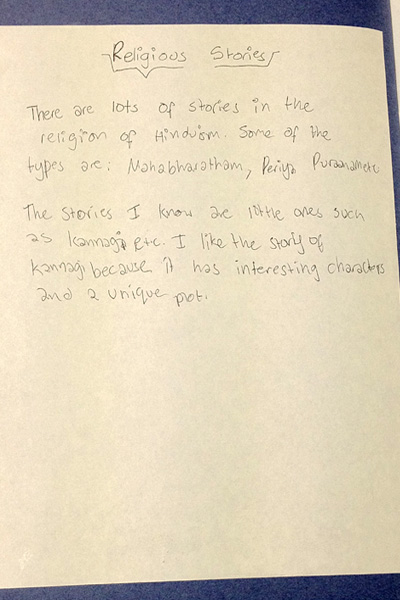 Religious Stories
There are lots of stories in the
religion of Hinduism. Some of the
types are: Mahabharatham, Periya Puraanam etc
The stories I know are little ones such
as Kannagi etc. I like the story of
Kannagi because it has interesting characters
and a unique plot.